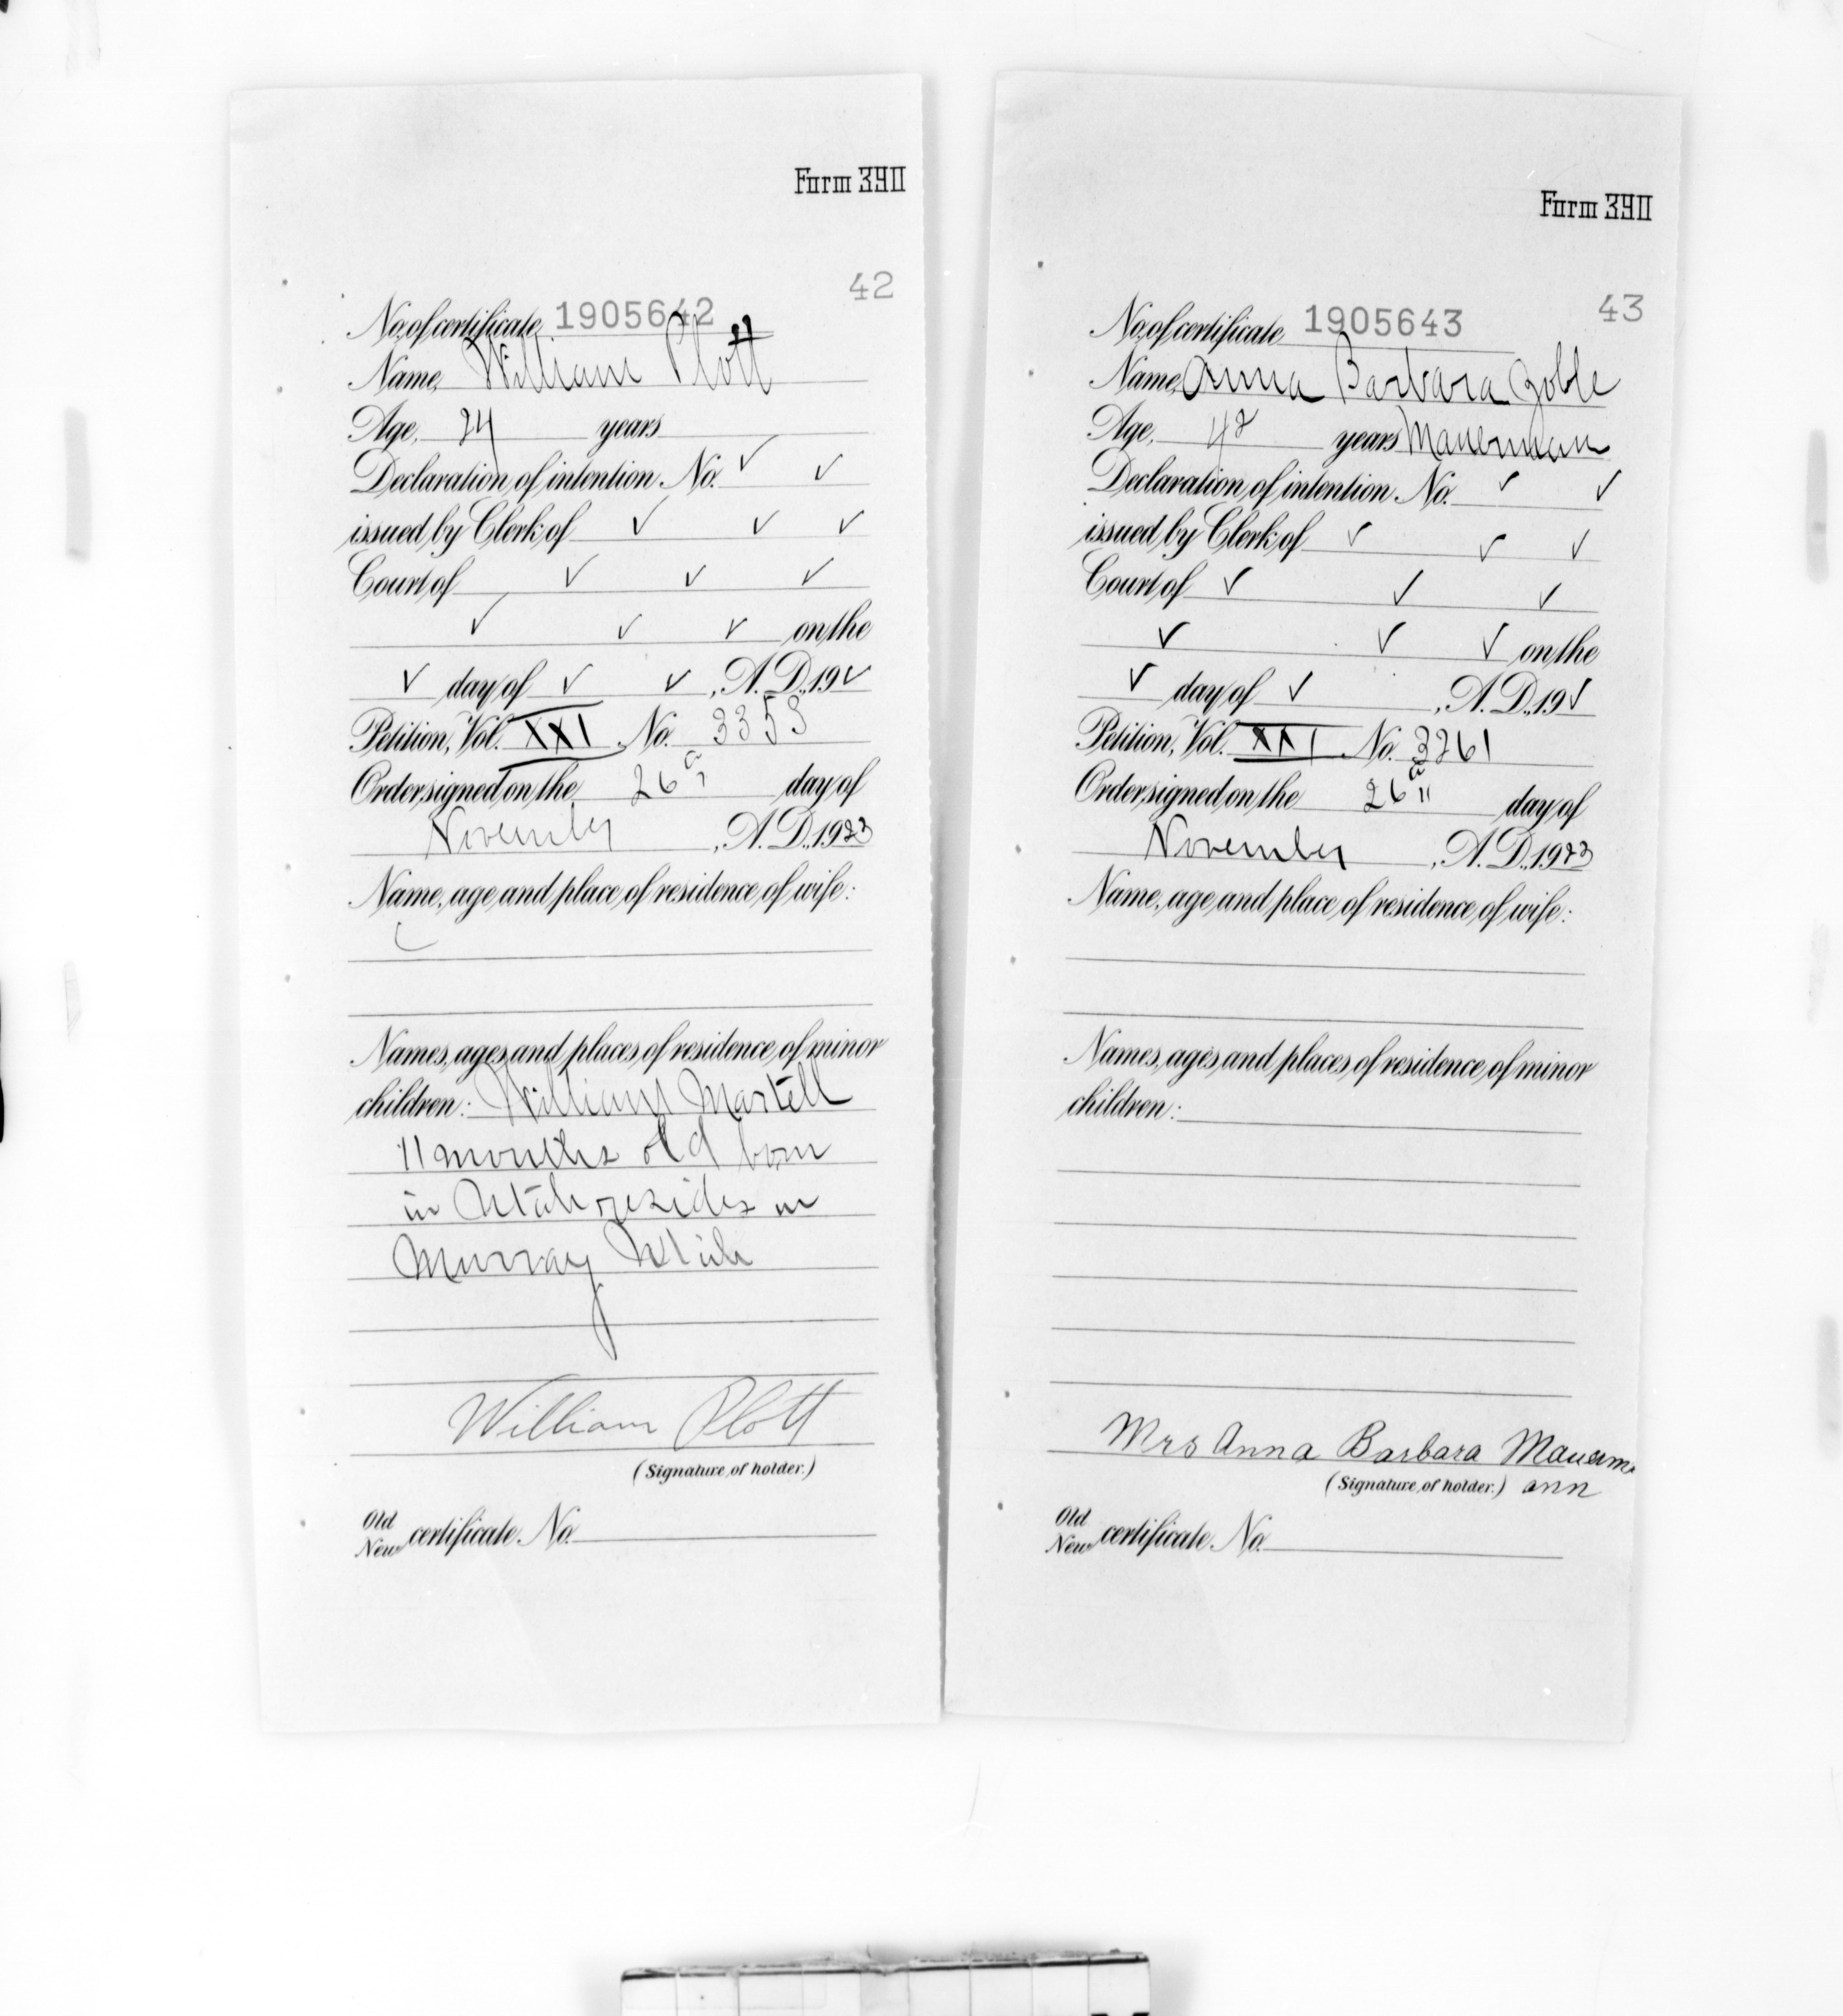 Form 390
42
No. of certificate 1905642
Name, William Plott
Age, 24 years
Declaration of intention No. ✓ ✓
issued by Clerk of ✓ ✓ ✓
Court of ✓ ✓ ✓
✓ ✓ ✓ on the
✓ day of ✓ ✓, A. D., 19✓
Petition, Vol. XXI No.
Order signed on the 26 day of
November, A. D., 1923
Name, age and place of residence of wife:
Names, ages and places of residence of minor
children: William Martell
11 months old born
in Utah resides in
Murray Utah
William Plott
(Signature of holder.)
Old
New certificate No.
Form 390
43
No. of certificate 1905643
Name, Anna Barbara Goble
Age, 42 years Mauermann
Declaration of intention No. ✓ ✓
issued by Clerk of ✓ ✓ ✓
Court of ✓ ✓ ✓
✓ ✓ ✓ on the
✓ day of ✓, A. D., 19✓
Petition, Vol. XXI No. 3261
Order signed on the 26 day of
November, A. D., 1923
Name, age and place of residence of wife:
Names, ages and places of residence of minor
children:
Mrs Anna Barbara Mauerm
(Signature of holder.) ann
Old
New certificate No.